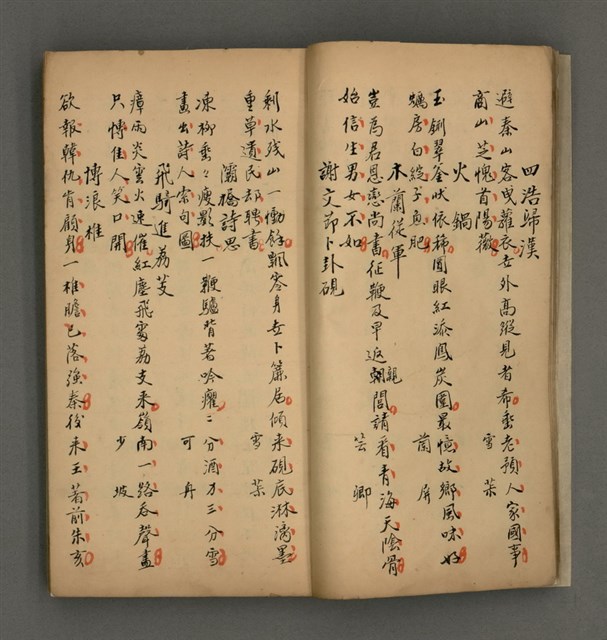 四浩歸漢
避秦山客曳蘿衣世外高蹤見者希垂老預人家國事
商山芝愧首陽薇　雪葇
火鍋
玉鉶翠釜吠依稀圓眼紅添鳳炭圍最憶故鄉風味好
蠣房白綻子魚肥　蘭屏
木蘭從軍
豈為君恩戀尚書征鞭及早返親閭請看青海天陰骨
始信生男女不如　芸卿
謝文節卜卦硯
剩水殘山一慟餘飄零身世卜簾居傾來硯底淋漓墨
重草遺民却聘書　雪葇
灞橋詩思
凍柳垂々瘦影扶一鞭驢背著吟癯二分酒力三分雪
畫出詩人索句圖　可舟
飛騎進荔芰
瘴雨炎雲火速催紅塵飛處荔支來嶺南一路吞聲盡
只博佳人笑口開　少坡
博浪椎
欲報韓仇肯顧身一椎膽已落強秦後來王著前朱亥